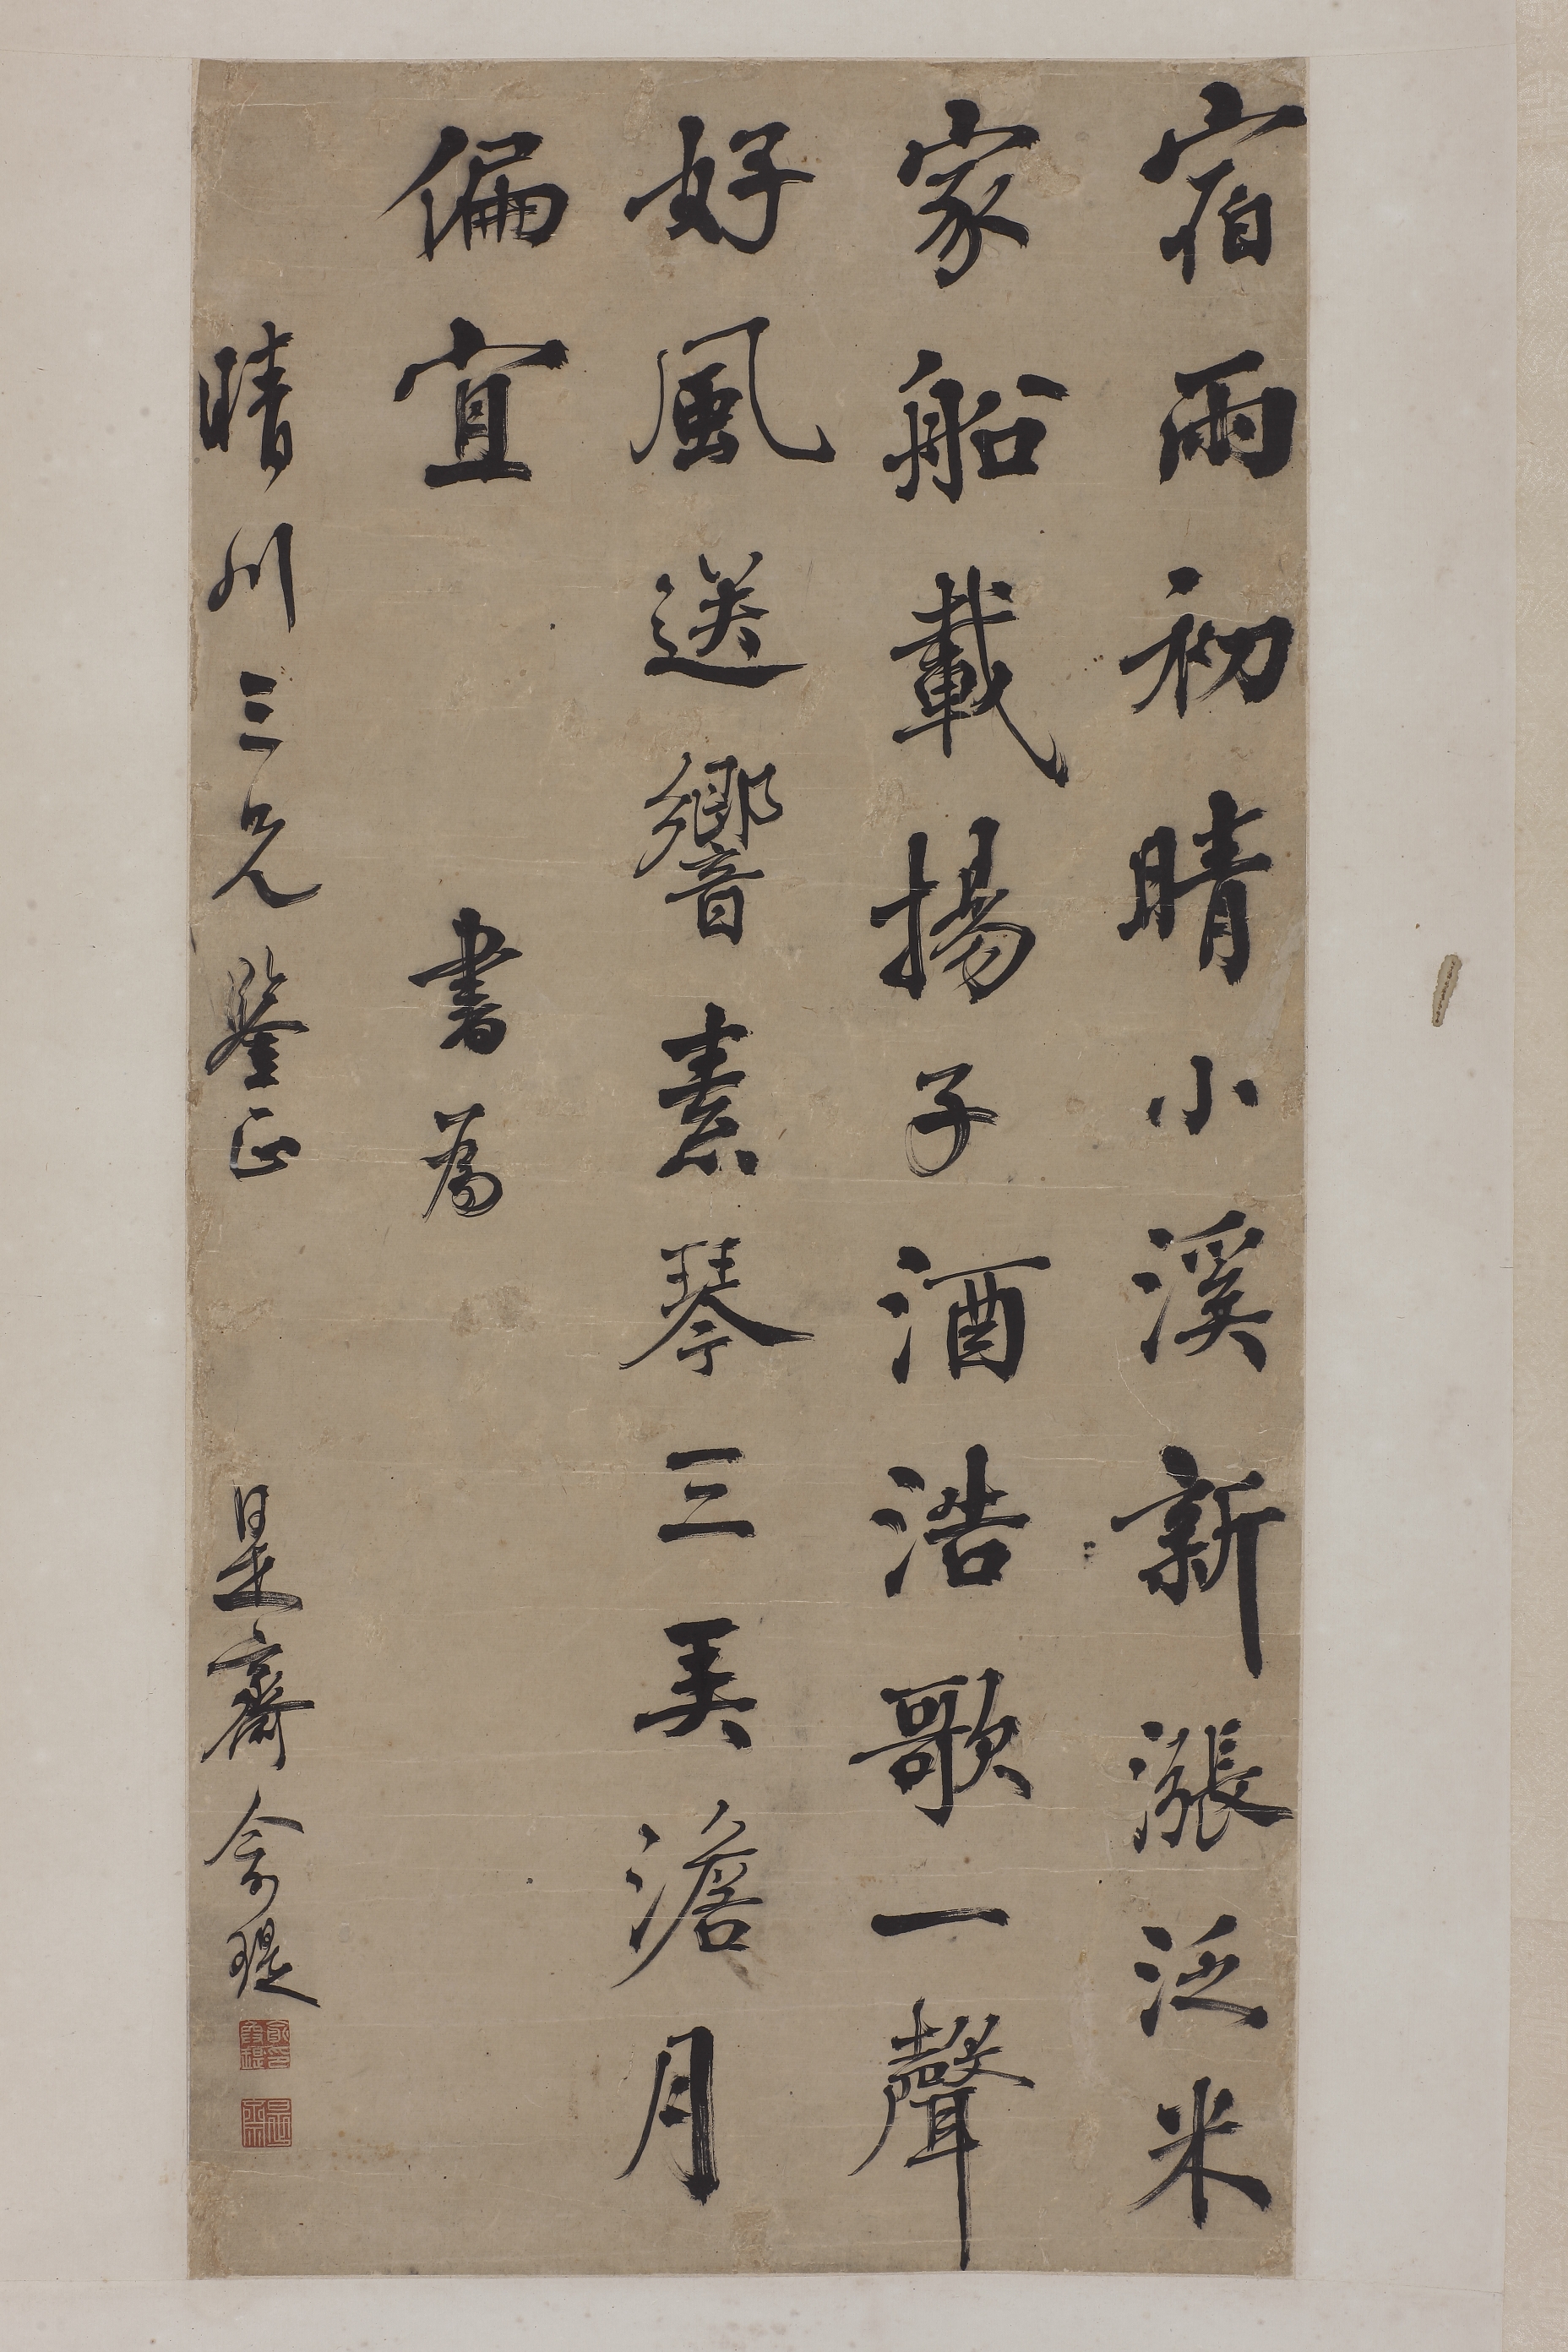 宿雨初晴小溪新漲泛米
家船載揚子酒浩歌一聲
好風送響素琴三弄澹月
偏宜
書為
晴川三兄鑒正
是齋俞瑆